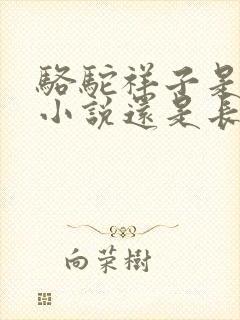 駱駝祥子是
小說還是長
向荣樹